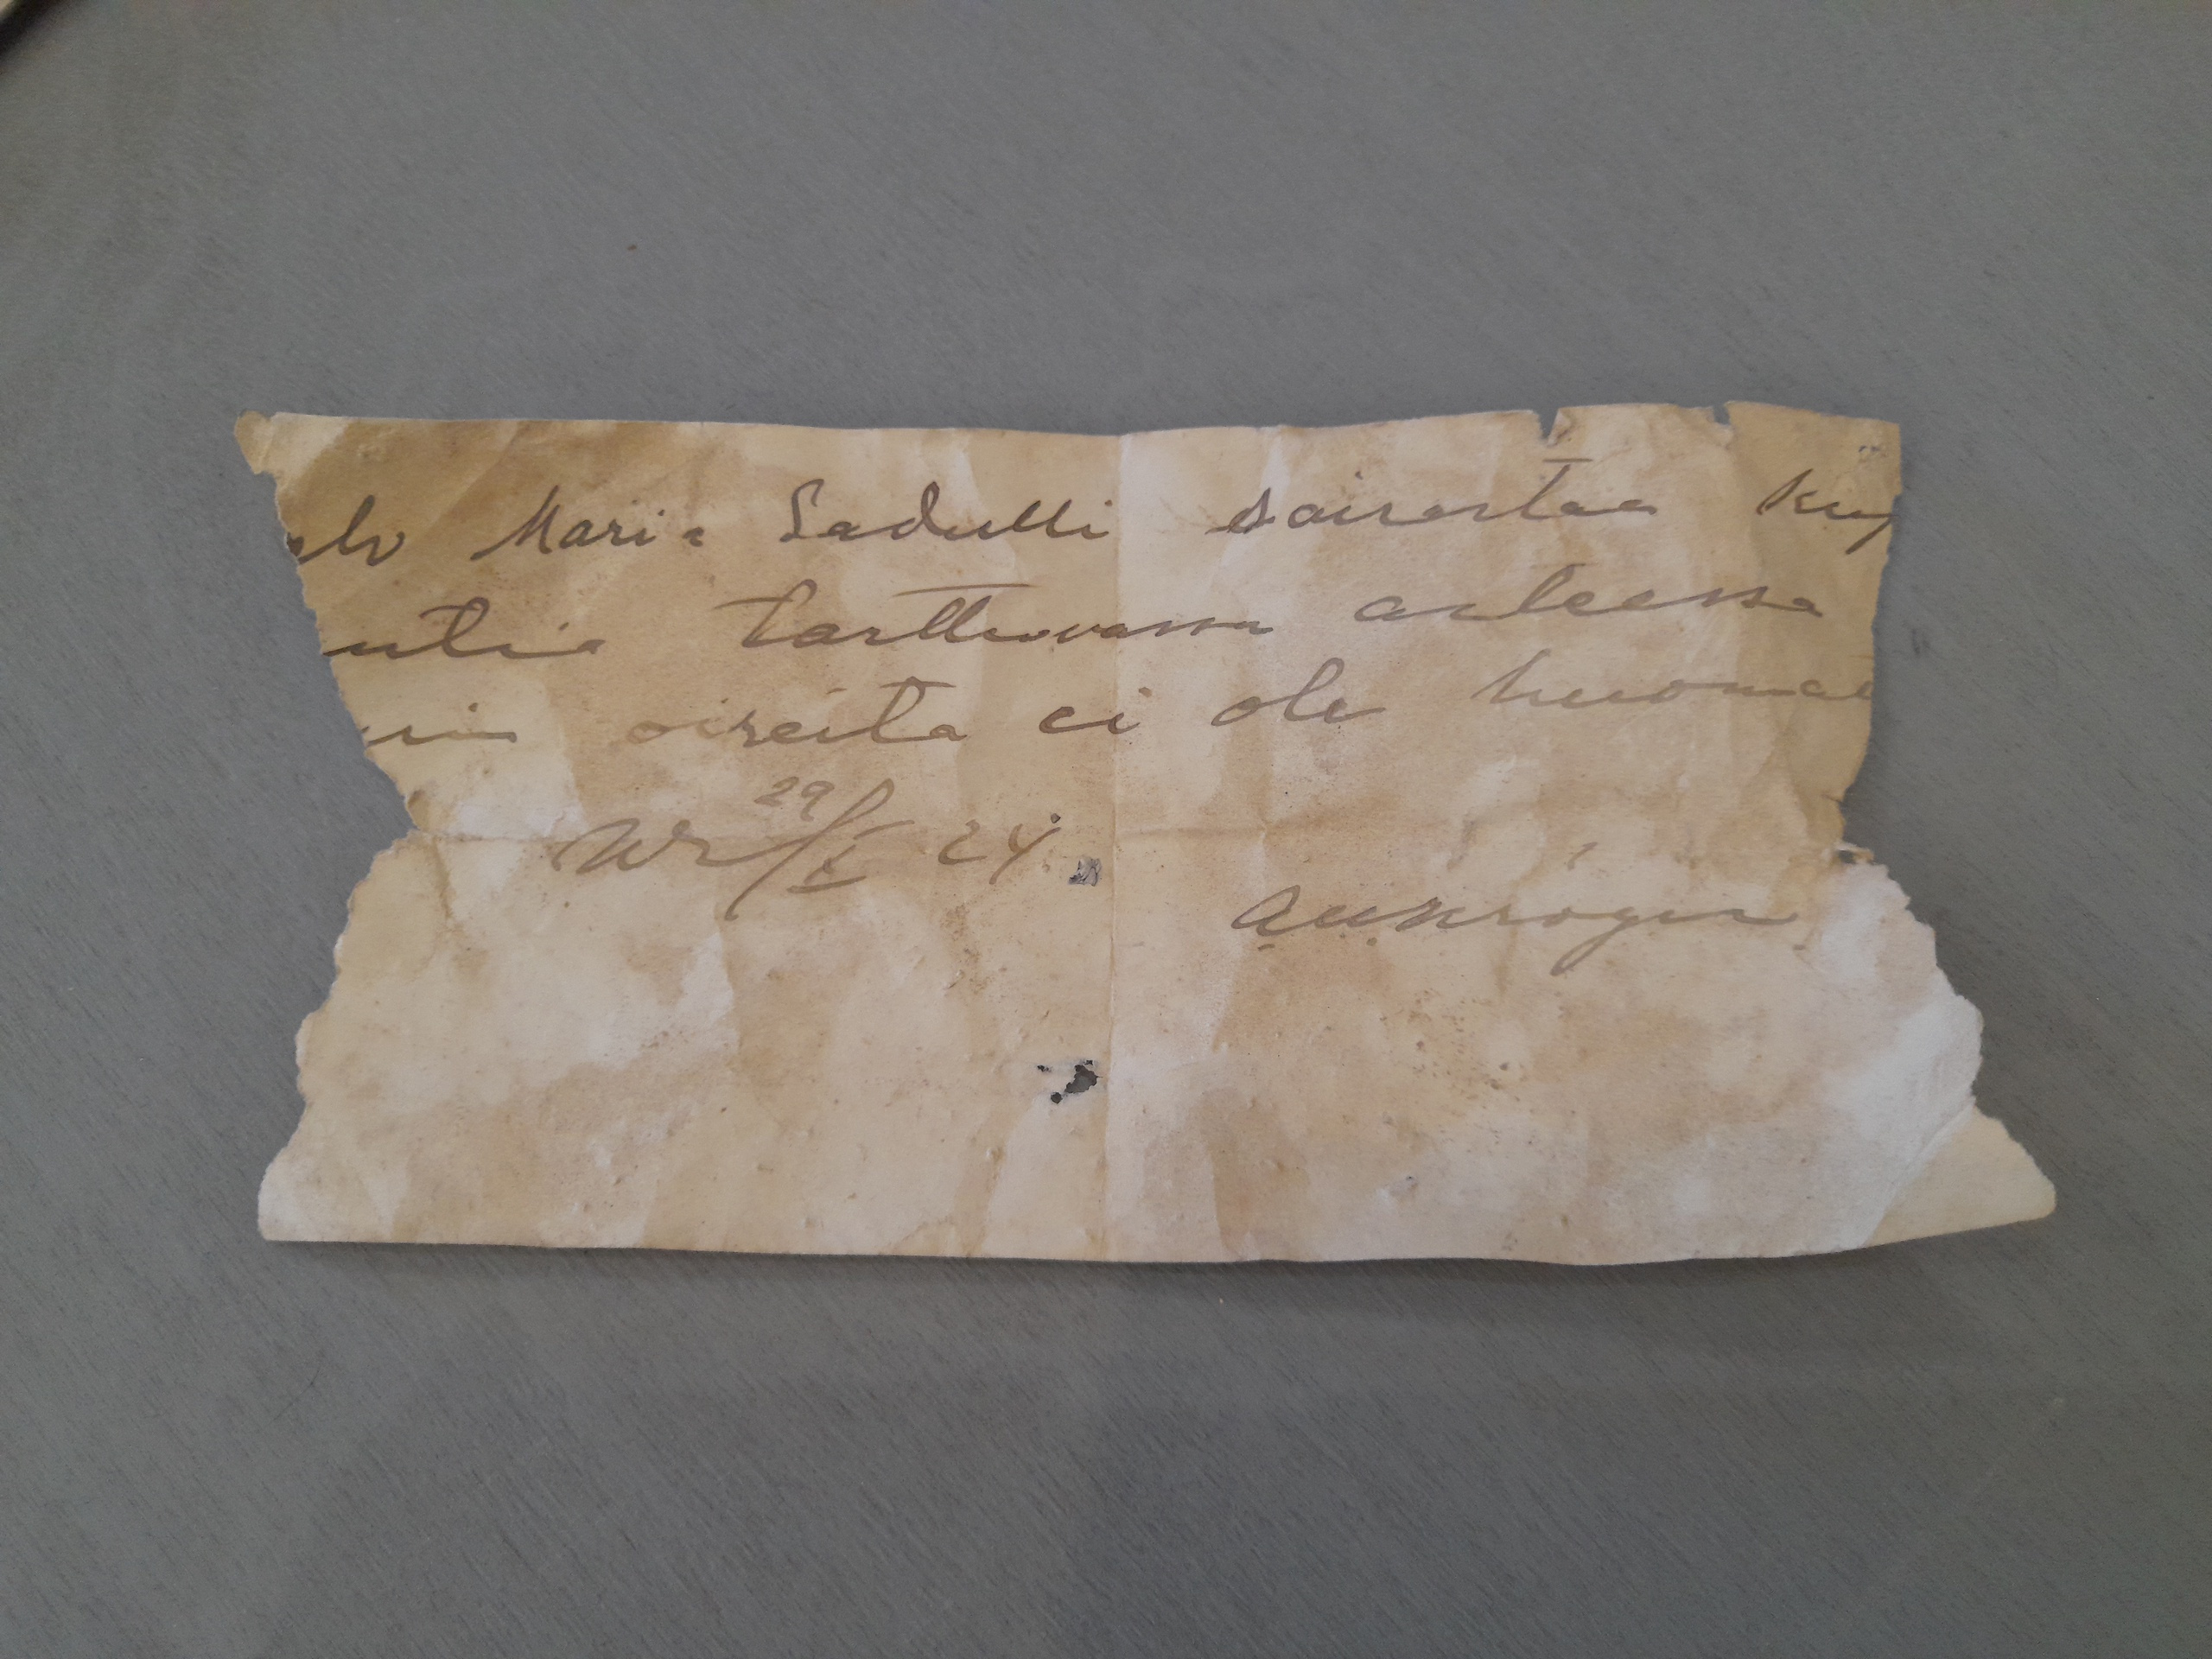 Maria Sadulli sairastaa kup
utia tarttuvassa asteessa
min oireita ei ole huomat
29/X 24.